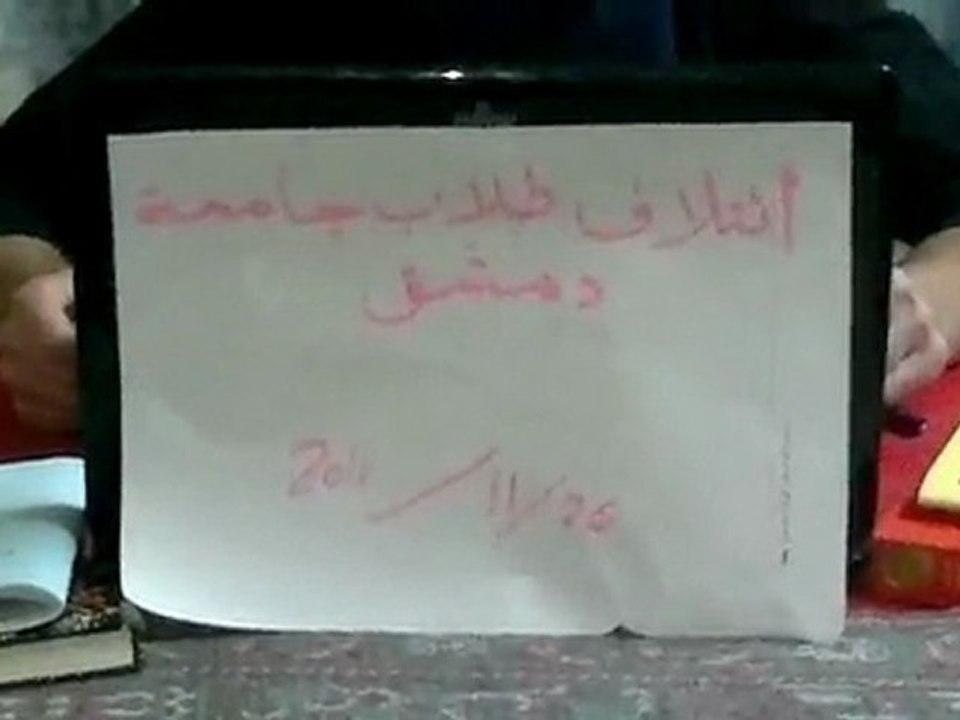 ائتلاف طلاب جامعة
دمشق
2011/11/26